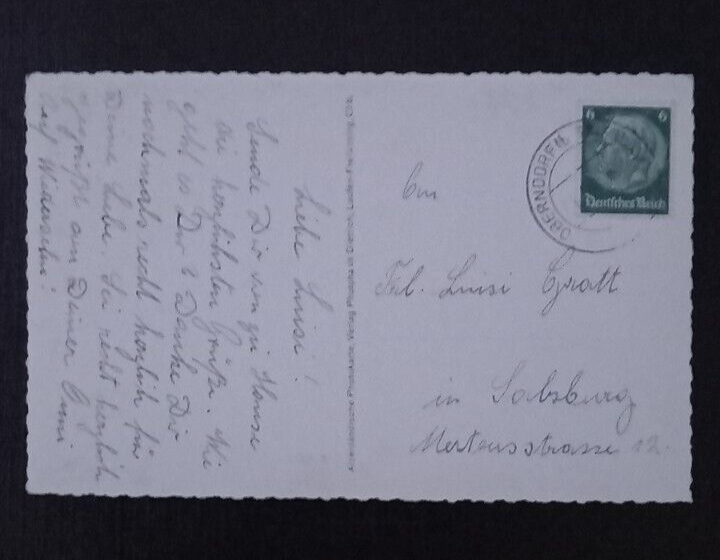 Liebe Luisi!
Sende Dir von zu Hause
die herzlichsten Grüße. Wie
geht es Dir? Danke Dir
nochmals recht herzlich für
Deine Liebe. Sei recht herzlich
gegrüßt von Deiner
Auf Wiedersehn!
6 6
Deutsches Reich
OBERNDORF
An
Frl. Luisi Gratt
in Salzburg
12.